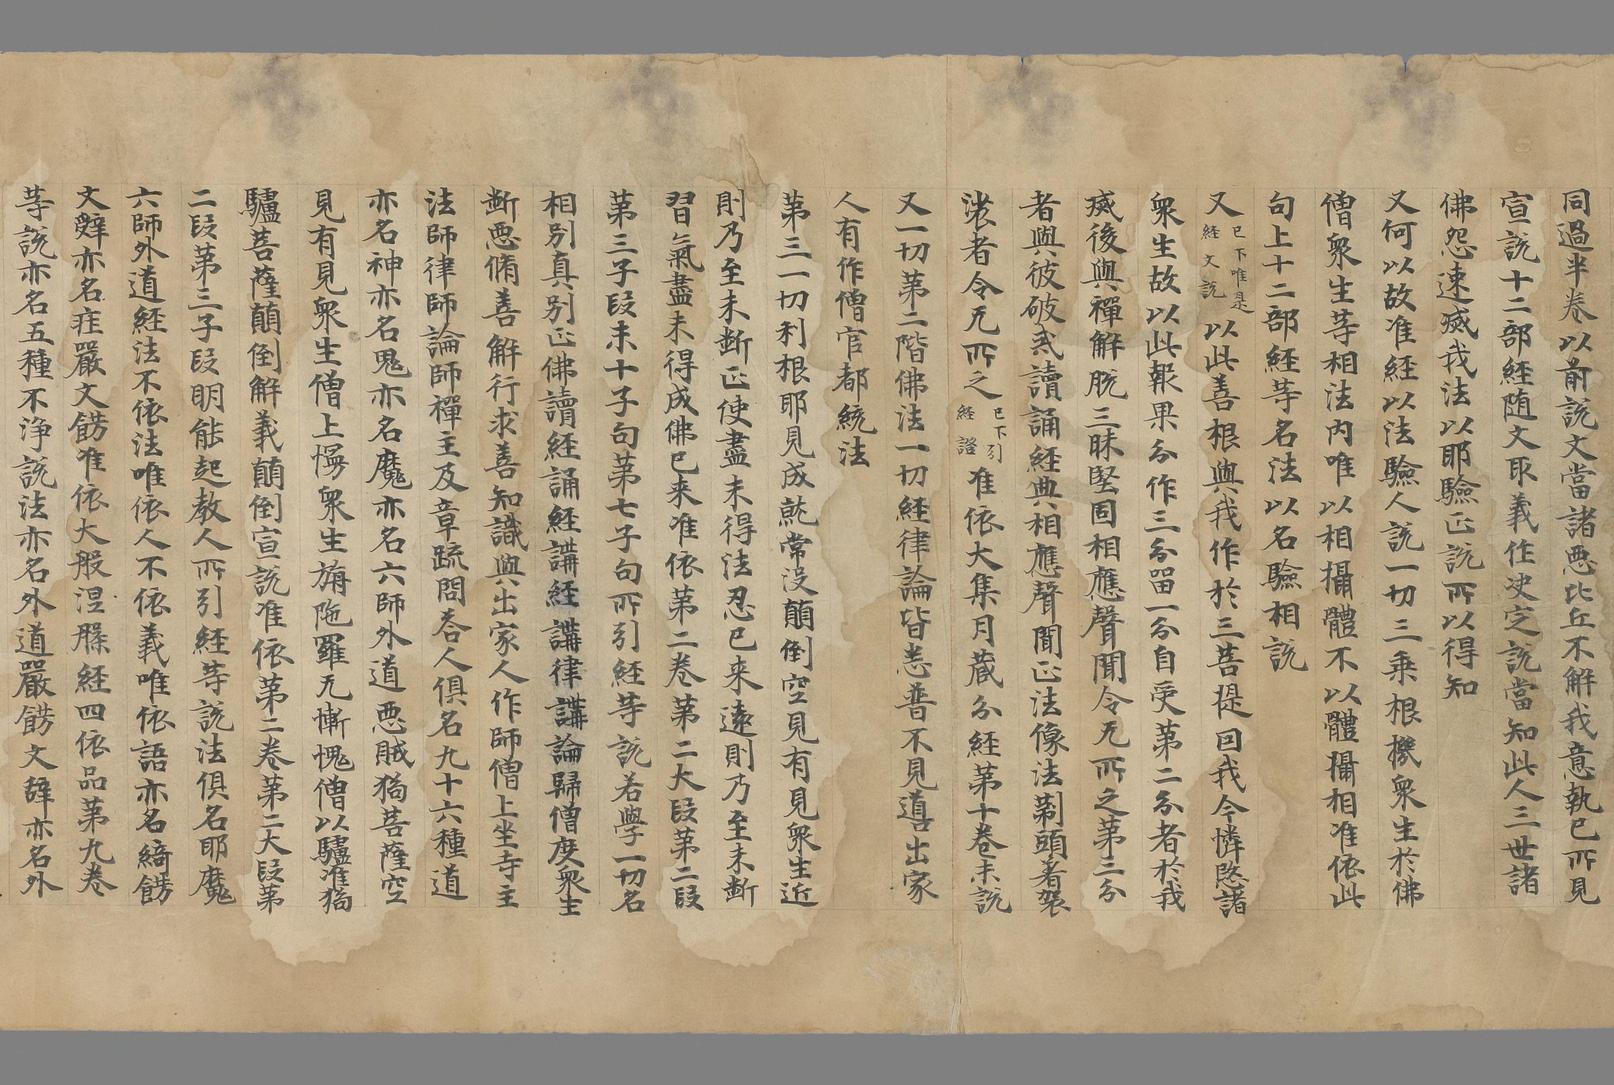 同過半卷以前說文當諸惡比丘不解我意執已所見
宣說十二部經随文取義作决定說當知此人三世諸
佛怨速滅我法以耶驗正說所以得知
又何以故准經以法驗人說一切三乘根機衆生於佛
僧衆生等相法內唯以相攝體不以體攝相准依此
句上十二部經等名法以名驗相說
又已下唯是經文說以此善根與我作於三菩提回我今憐愍諸
衆生故以此報果分作三分留一分自受第二分者於我
滅後與禪解脫三昧堅固相應聲聞令无所之第三分
者與彼破戒讀誦經典相應聲聞正法像法剃頭著袈
裟者令无所之已下引經證准依大集月藏分經第十卷末說
又一切第二階佛法一切經律論皆悉普不見道出家
人有作僧官都統法
第三一切利根耶見成就常沒顛倒空見有見衆生近
則乃至未斷正使盡未得法忍已來遠則乃至未斷
習氣盡未得成佛已來准依第二卷第二大段第二段
第三子段末十子句第七子句所引經等說若學一切名
相別真別正佛讀經誦經講經講律講論歸僧度衆生
斷惡脩善解行求善知識與出家人作師僧上坐寺主
法師律師論師禪主及章疏問荅人俱名九十六種道
亦名神亦名鬼亦名魔亦名六師外道惡賊猗菩薩空
見有見衆生僧上慢衆生旃陁羅无慚愧僧以驢准猗
驢菩薩顛倒解義顛倒宣說准依第二卷第二大段第
二段第三子段明能起教人所引經等說法俱名耶魔
六師外道經法不依法唯依人不依義唯依語亦名綺餝
文辭亦名疰嚴文餝准依大般涅槃經四依品第九卷
等說亦名五種不淨說法亦名外道嚴餝文辞亦名外